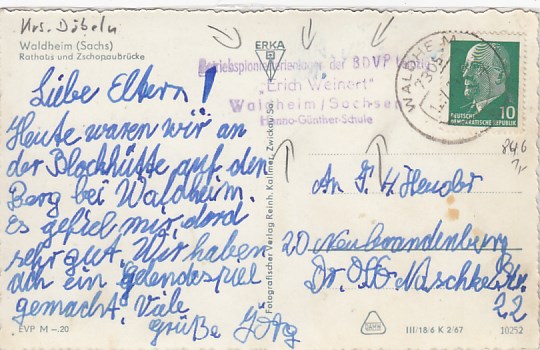 Krs. Döbeln
Waldheim (Sachs)
Rathaus und Zschopaubrücke
ERKA
Betriebspionierlager der BDVP
„Erich Weinert"
Waldheim/Sachsen
Hanno-Günther-Schule
WALDHEIM
7305
10
DEUTSCHE
DEMOKRATISCHE REPUBLIK
846
Liebe Eltern!
Heute waren wir an
der Blockhütte auf den
Berg bei Waldheim.
Es gefiel mir dord
sehr gut. Wir haben
doh ein Gelendespiel
gemacht. Viele
Grüße Jörg
Fotografischer Verlag Reinh. Kallmer, Zwickau Sa.
An F. H.
20 Neubrandenburg
Dr. Otto Naschke
22
EVP M -.20
III/18/6 K 2/67
10252